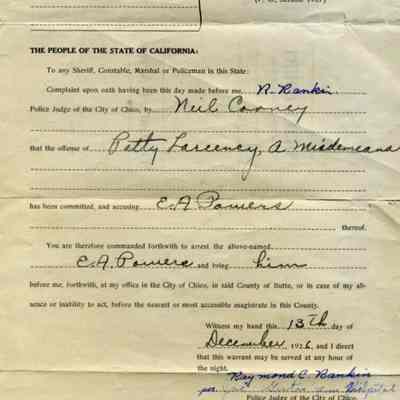 THE PEOPLE OF THE STATE OF CALIFORNIA:
To any Sheriff, Constable, Marshal or Policeman in this State:
Complaint upon oath having been this day made before me, R. Rankin
Police Judge of the City of Chico, by Neil Cooney
that the offense of Petty Larceney, A Misdemeanor
has been committed, and accusing E.A Powers
thereof.
You are therefore commanded forthwith to arrest the above-named
E.A. Powers and bring him
before me, forthwith, at my office in the City of Chico, in said County of Butte, or in case of my ab-
sence or inability to act, before the nearest or most accessible magistrate in this County.
Witness my hand this 13th day of
December 1926, and I direct
that this warrant may be served at any hour of
the night.
Raymond C. Rankin
per
Police Judge of the City of Chico.